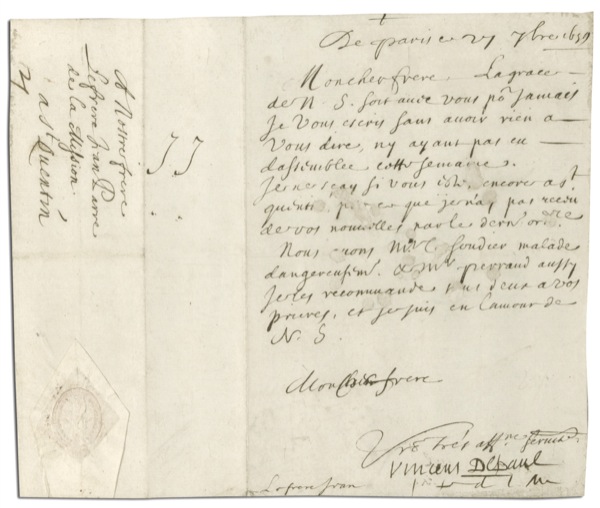 De paris ce 27 7bre 1659
Mon cher frere La grace
de N. S. soit avec vous po.r jamais
Je vous escris sans avoir rien a
vous dire, ny ayant pas eu
dassemblee cette semaine.
Je ne scay si vous este encore a s.t
quentin que je nay pas receu
de vos nouvelles par le dern.r ord.re
Nous avons Mr. malade
dangereusem.t & Mr perraud aussy
Je les recommande tous deux a vos
prieres, et je suis en lamour de
N. S.
Mon cher frere
Vre tres aff.ne servit.r
Vincens Depaul
Le frere Jean
A Nostre frere
Le frere Jean Parre
de la Mission
a St Quentin